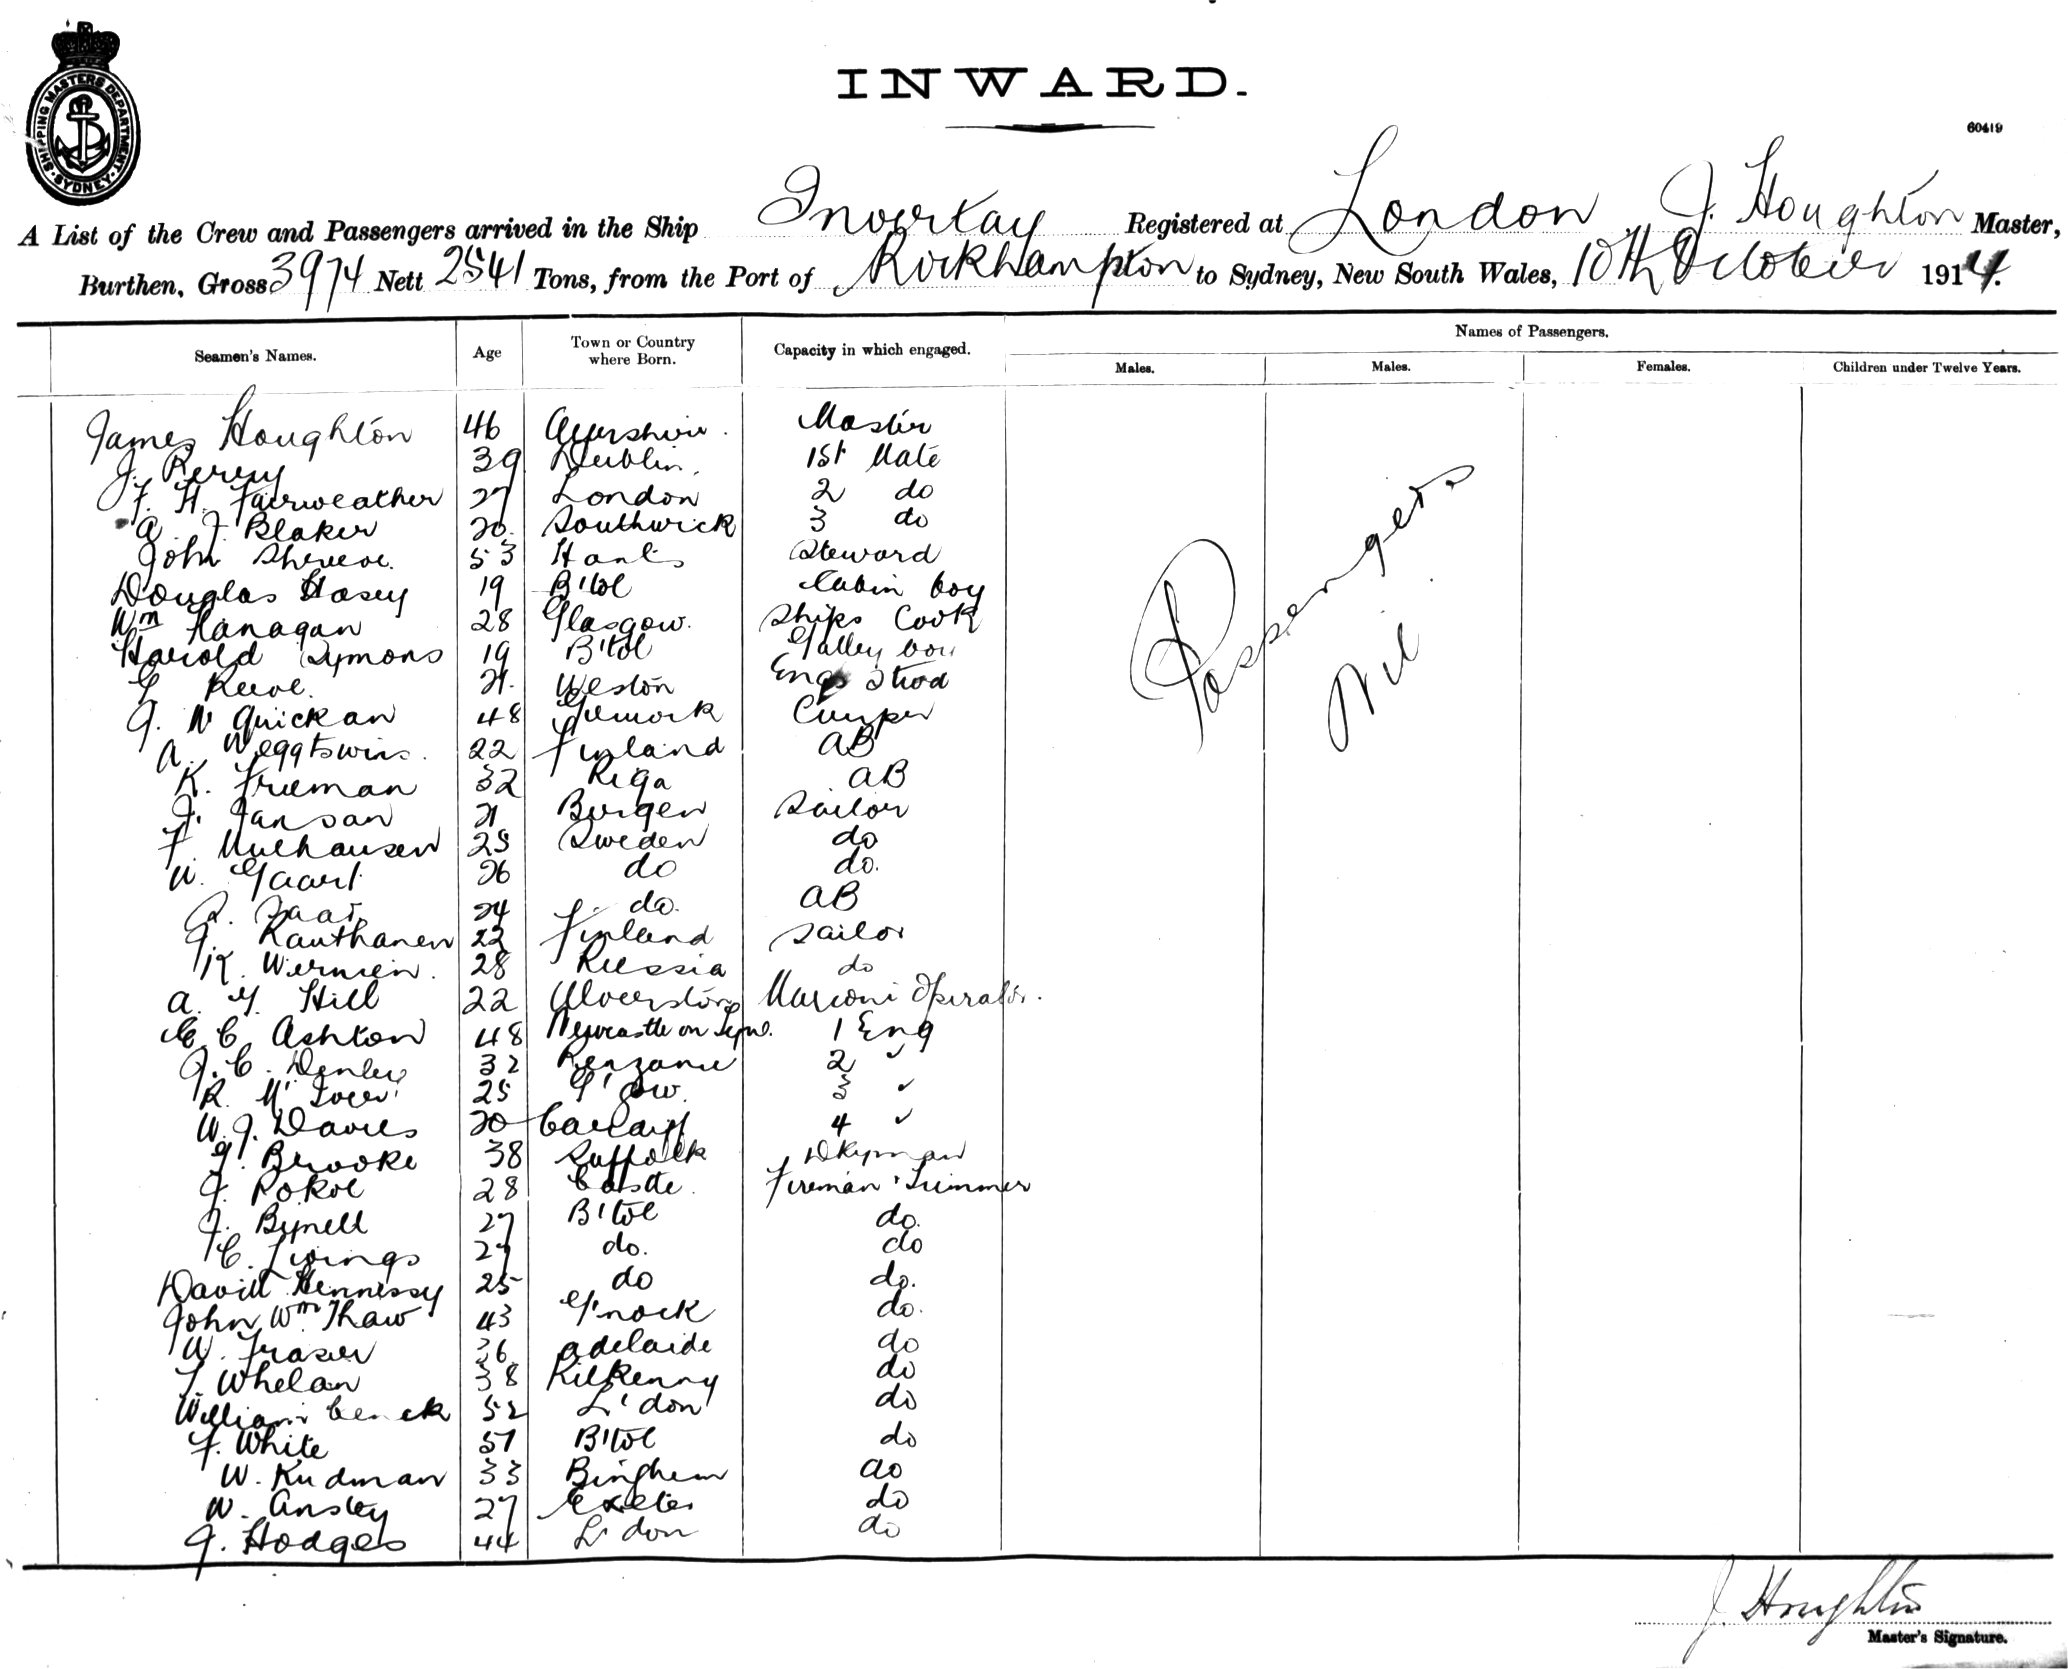 SHIPPING MASTERS DEPARTMENT. SYDNEY.
INWARD.
60419
A List of the Crew and Passengers arrived in the Ship Inverkay Registered at London J. Houghton Master,
Burthen, Gross 3974 Nett 2541 Tons, from the Port of Rockhampton to Sydney, New South Wales, 10th October 1914.
Seamen's Names. Age Town or Country where Born. Capacity in which engaged. Names of Passengers.
Males. Males. Females. Children under Twelve Years.
James Houghton 46 Ayrshire. Master
J. 39 Dublin. 1st Mate
F. H. Fairweather 27 London 2 do
A. J. Blaker 20. Southwick 3 do
John 53 Hants Steward
Douglas Hasey 19 B'tol Cabin boy
Wm Flanagan 28 Glasgow. Ships Cook
Harold Symons 19 B'tol Galley boy
G. Reeve. 21. Weston Engs Stwd
G. W Quickan 48 Cooper
A. 22 Finland AB
K. Freeman 32 Riga AB
J. Jansan 21 Bergen Sailor
F. Mulhausen 25 Sweden do
W. Gaart 26 do do.
24 do. AB
G. Kauthanen 22 Finland Sailor
K. 28 Russia do
A. G. Hill 22 Ulverston Marconi Operator.
E. C. Ashton 48 Newcastle on Tyne. 1 Eng
J. C. Denley 32 Penzance 2 "
R. 25 G'gow. 3 "
W. J. Davies 20 Cardiff 4 "
G. Brooke 38 Suffolk Dkyman
J. 28 Fireman & Trimmer
J. Bynell 27 B'tol do.
C. 27 do. do
David Hennessy 25 do do.
John Wm Thaw 43 G'nock do.
W. Fraser 36 Adelaide do
T. Whelan 38 Kilkenny do
William 52 L'don do
F. White 51 B'tol do
W. Kudman 33 Binghem do
W. Ansley 27 Exeter do
G. Hodges 44 L'don do
Passengers
Nil.
J. Houghton
Master's Signature.